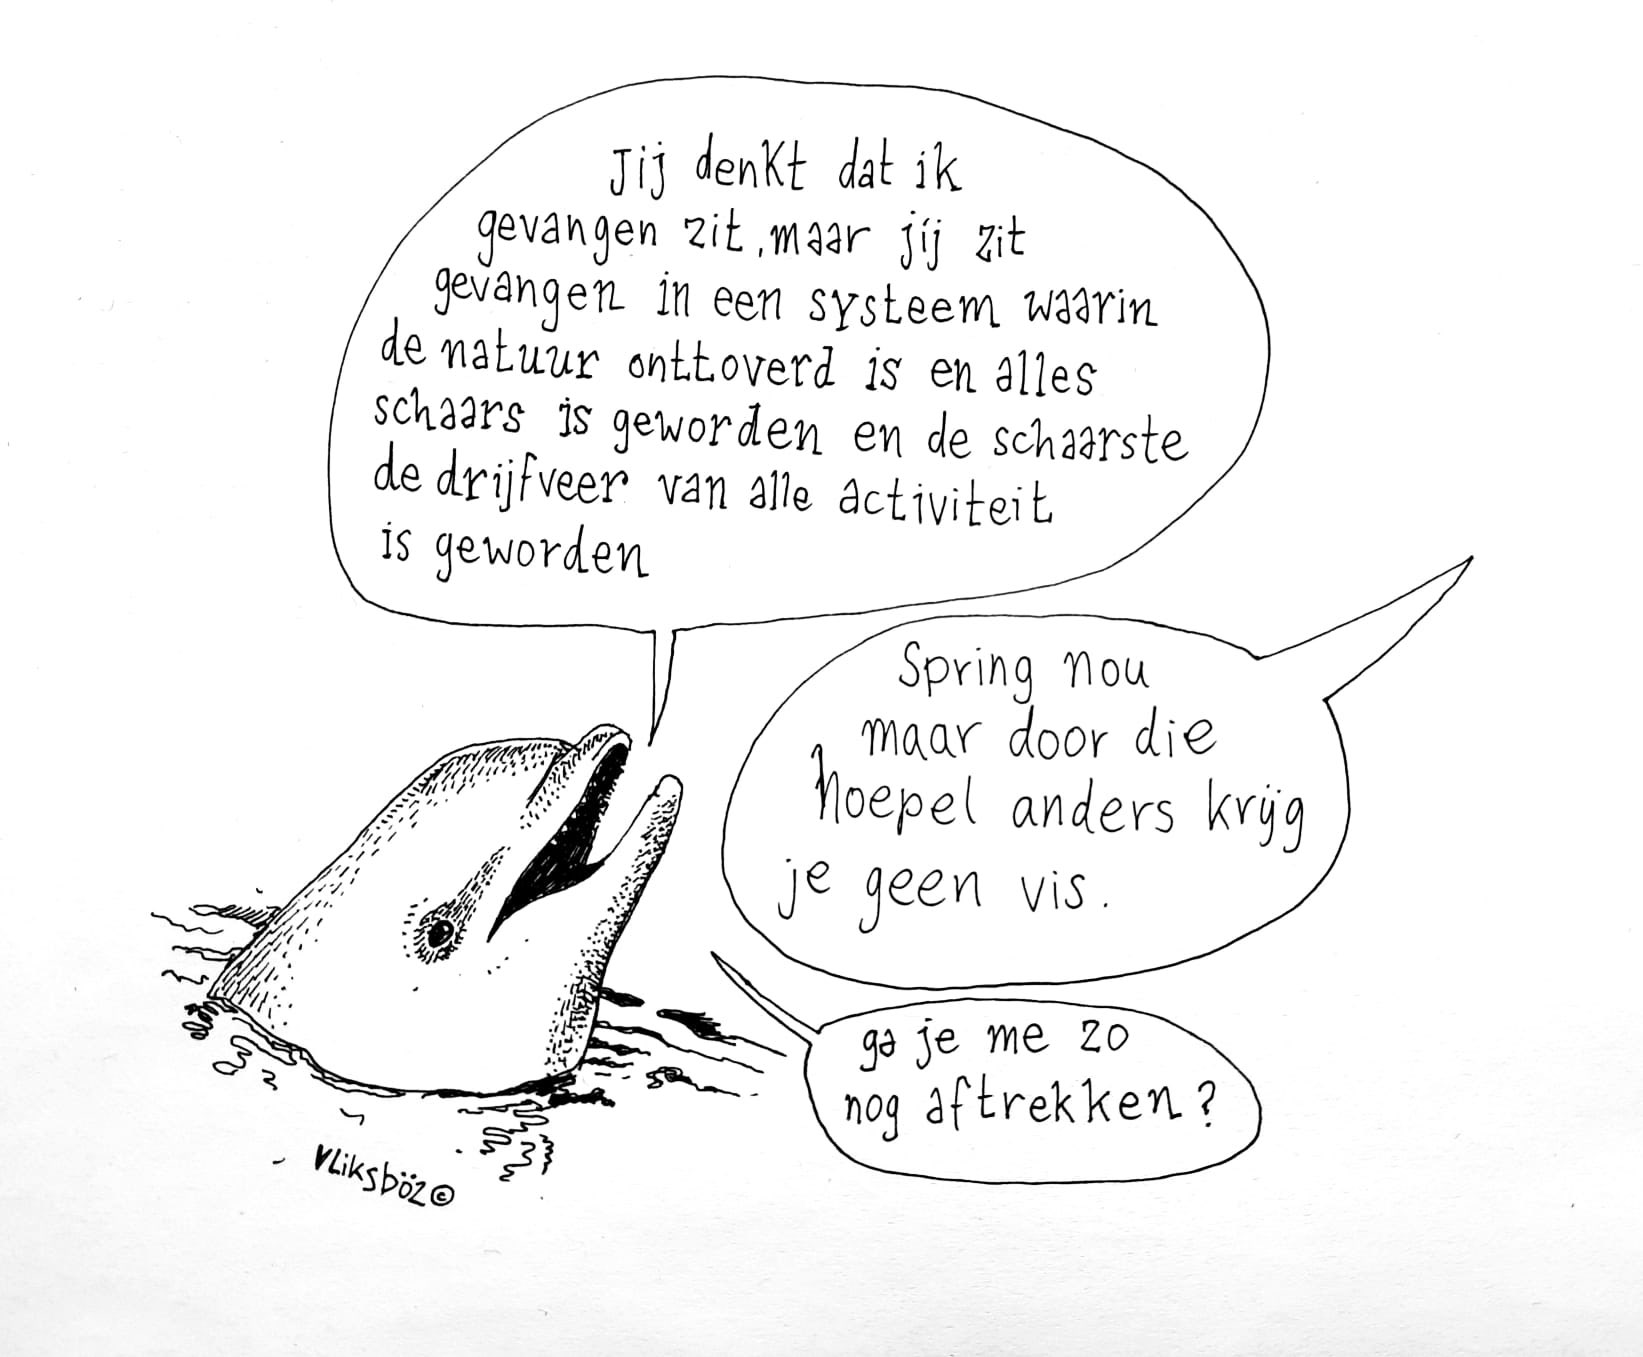 Jij denkt dat ik
gevangen zit, maar jíj zit
gevangen in een systeem waarin
de natuur onttoverd is en alles
schaars is geworden en de schaarste
de drijfveer van alle activiteit
is geworden
Spring nou
maar door die
hoepel anders krijg
je geen vis.
ga je me zo
nog aftrekken?
VLiksböz ©